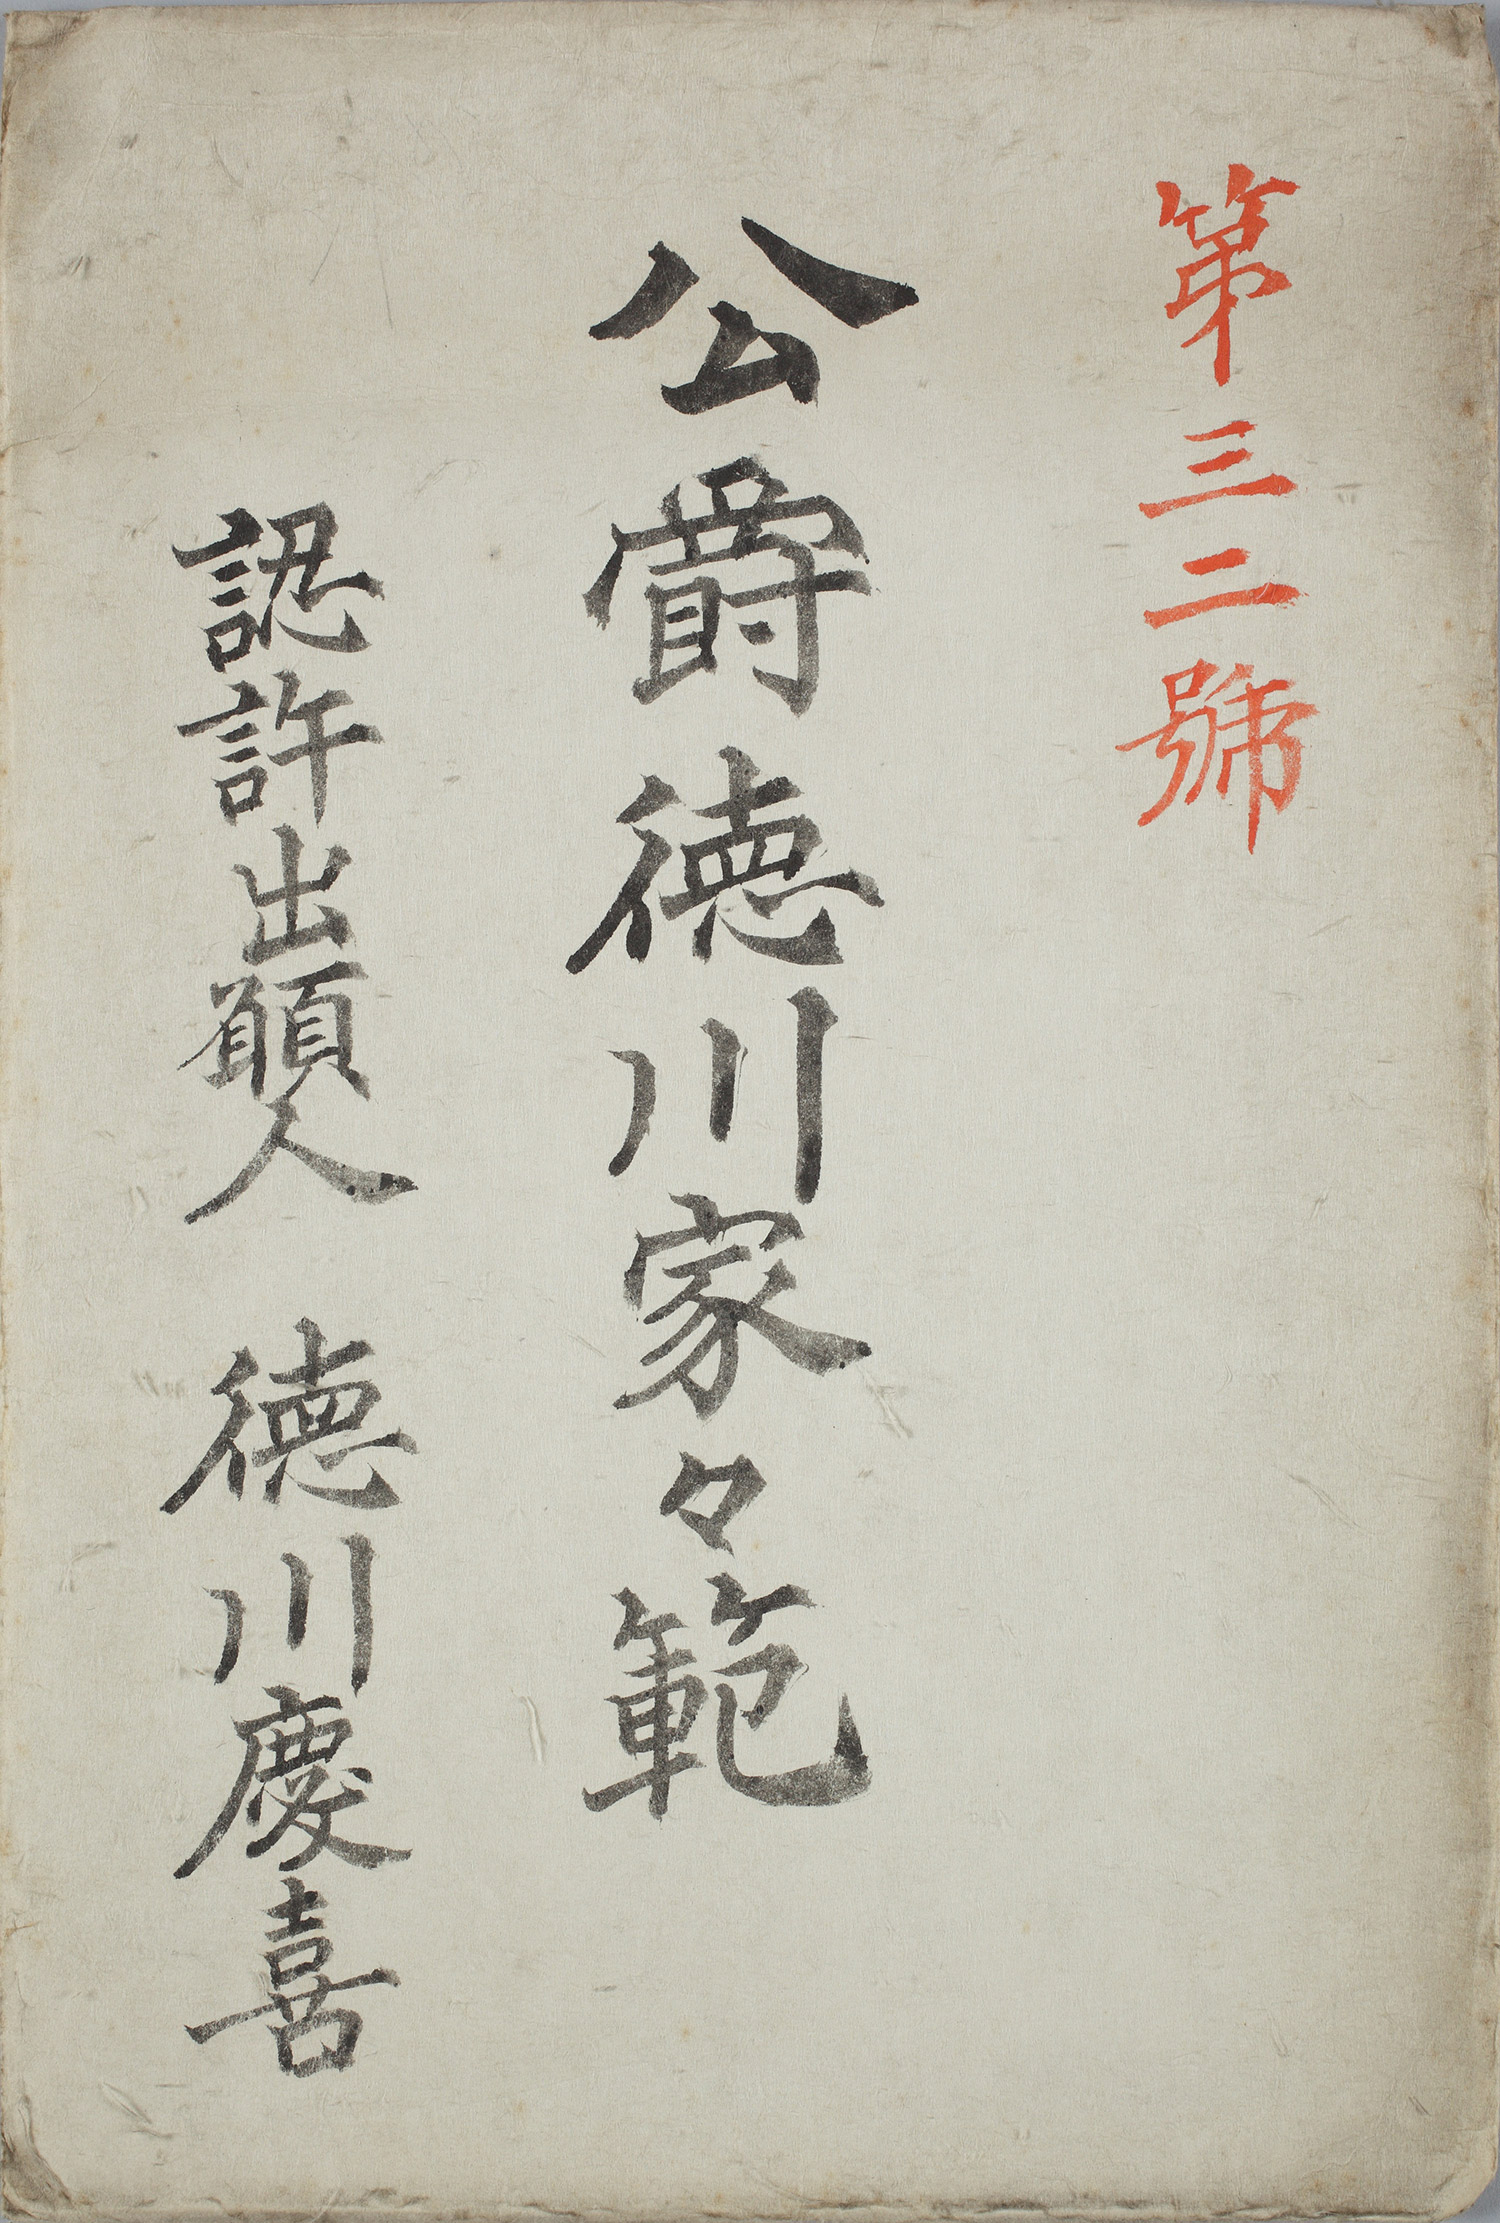 第三二號
公爵徳川家々範
認許出願人 徳川慶喜